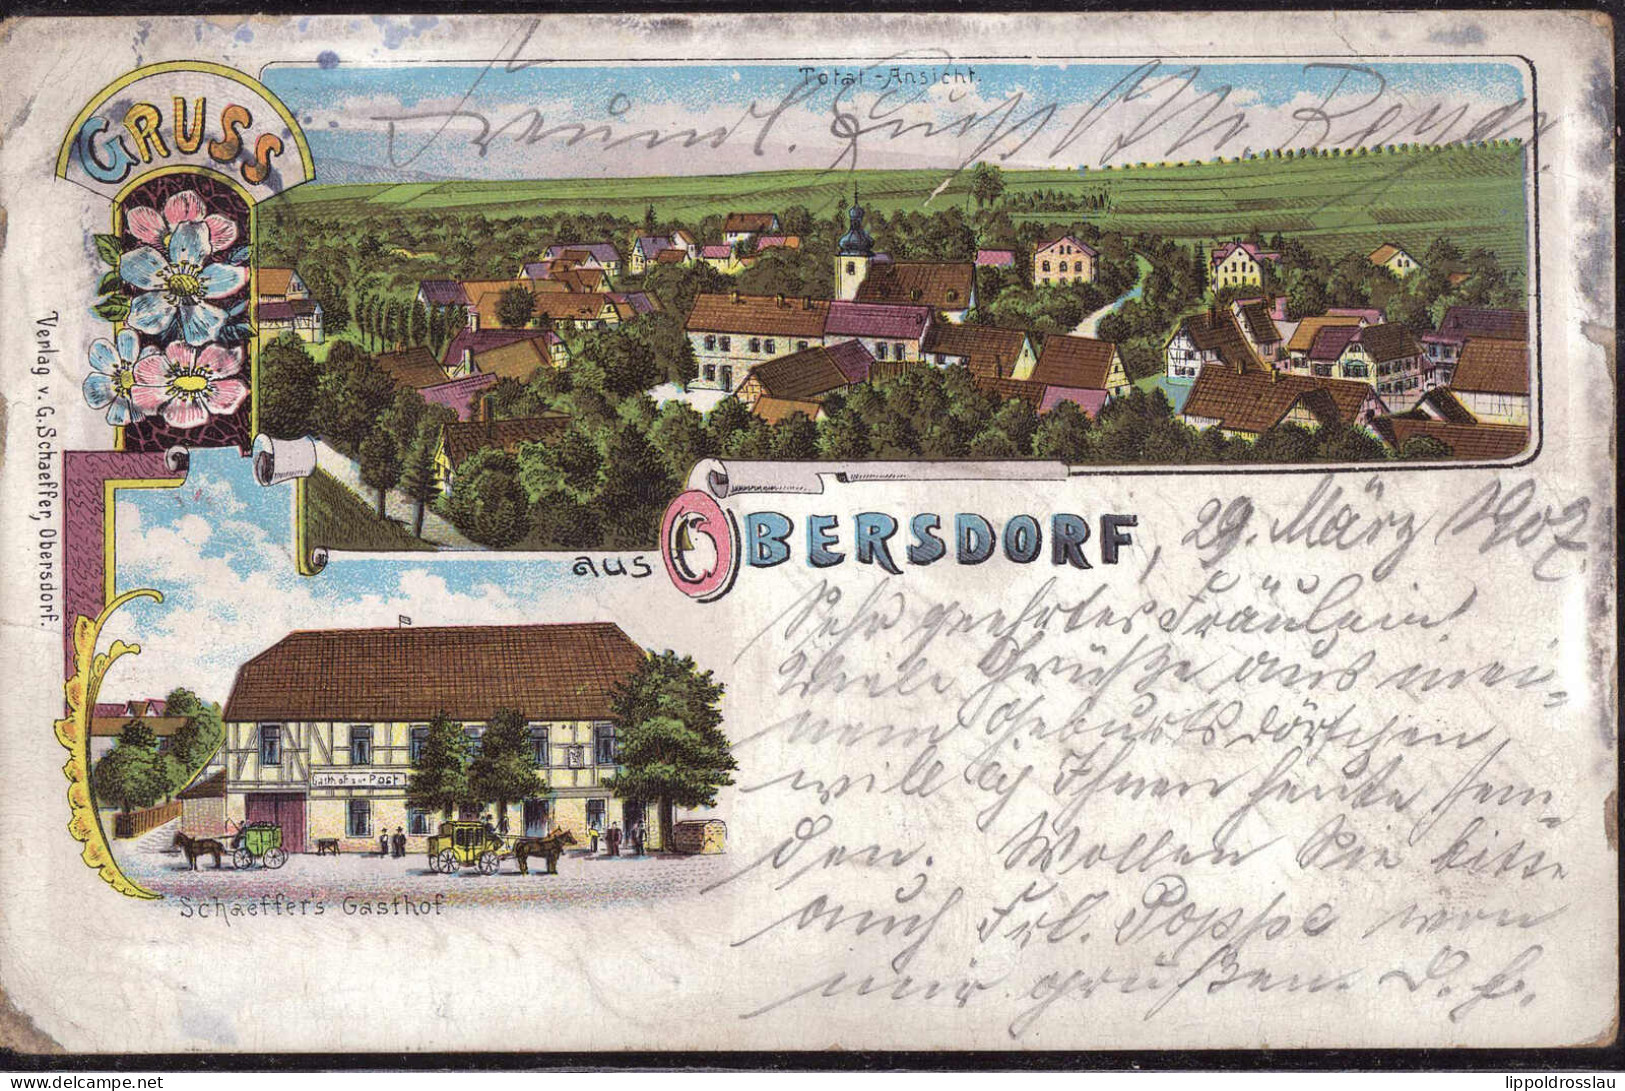 GRUSS
Total-Ansicht.
Freundl. Gruß
aus OBERSDORF, 29. März 1902.
Sehr geehrtes Fräulein.
Viele Grüße aus mei-
nem Geburtsdörfchen
will ich Ihnen heute sen-
den. Wollen Sie bitte
auch Frl. Poppe von
mir grüßen.
Gasthof zur Post
Schaeffer's Gasthof
Verlag v. G. Schaeffer, Obersdorf.
delcampe.net
lippoldrosslau